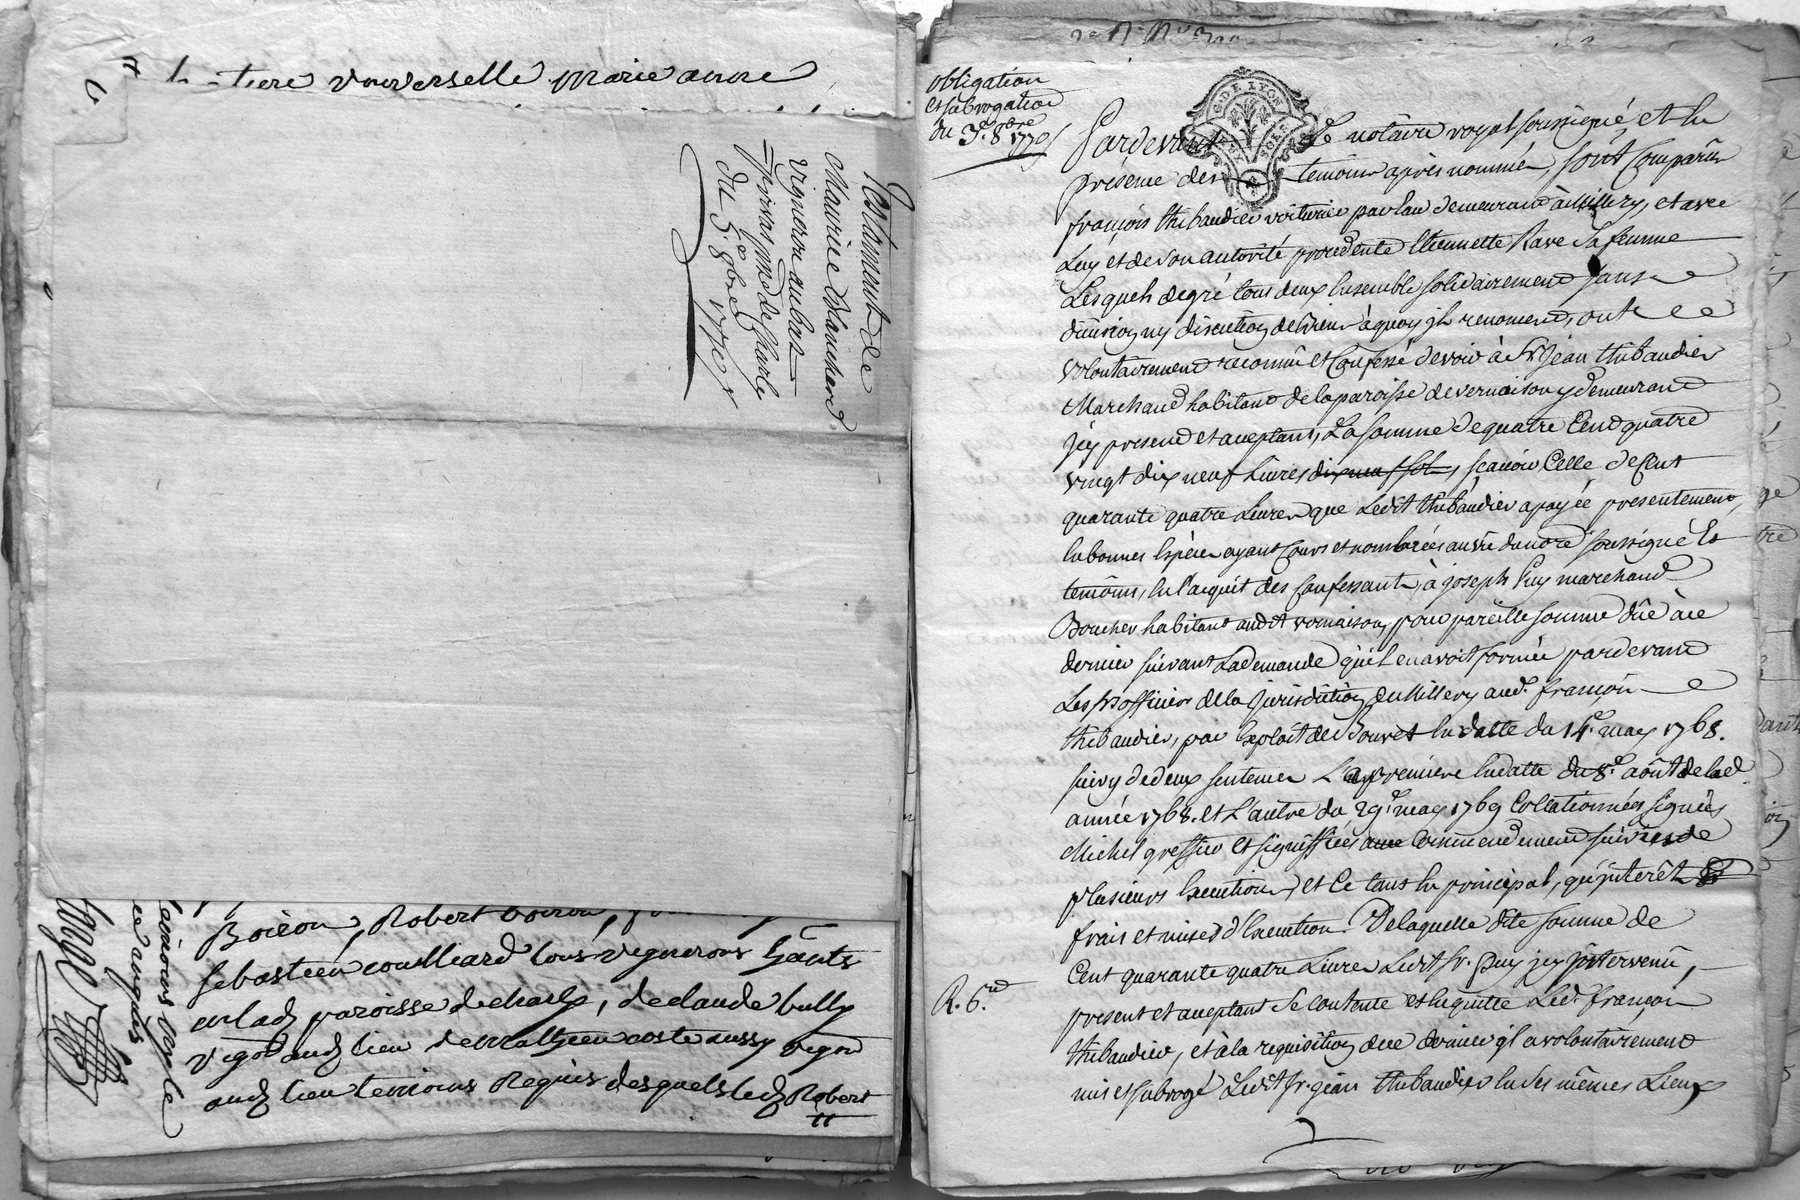 universelle marie anne
Testament de
Maurice blanchard
vigneron au bas
privas ppsse de Charly
du 5e 8bre 1770
Boiron, Robert boiron,
sebastien couilliard tous vignerons hãnts
en lad paroisse de charly, de claude bully
vigon aud lieu de mathieu coste aussy vigon
aud lieu temoins Requis desquels led Robert
obligation
et subrogation
du 3e 8bre 1770
G. DE LYON
Pardevant Le notaire royal soussigné, et En
présence des temoins après nommés, sont Comparus
françois thibaudier voiturier par eau demeurant à Millery, et avec
Luy et de son autorité procedente Etiennette Rave Sa femme
Lesquels de gré tous deux Ensemble solidairement sans
division ny discution de biens à quoy ils renoncent, ont
volontairement reconnu et Confessé devoir à Sr. Jean thibaudier
Marchand habitant de la paroisse de vernaison y demeurant
Icy present et acceptant, La somme de quatre Cent quatre
vingt dix neuf Livres dix neuf sols, scavoir Celle de Cent
quarante quatre Livres que Ledit thibaudier a payée presentement,
En bonnes Espèces ayant Cours et nombrées au vû du no.re soussigné Et
temoins, En l'acquit des Confessants, à joseph Puy marchand
Boucher habitant audt vernaison, pour pareille somme dûe à ce
dernier suivant La demande qu'il en avoit formée pardevant
Les srs officiers de la Jurisdiction de Millery aud. françois
thibaudier, par Exploit de Bouvet En datte du 14e. may 1768.
suivy de deux sentences L'a première En datte du 8e. août de lad.
année 1768. et L'autre du 29e. may 1769 Collationnées signées
Michel greffier et signiffiées avec Commendement suivies de
plusieurs Execution, et Ce tant En principal, qu'interêt
frais et mises d'Execution. De laquelle ditte somme de
Cent quarante quatre Livres Ledit sr. Puy icy intervenu,
R. 6.
present et acceptant se contente et En quitte Led. françois
thibaudier, et à la requisition de ce dernier il a volontairement
mis et subrogé Ledit sr. jean thibaudier En Ses mêmes Lieux